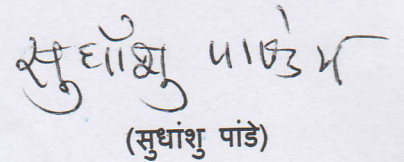 सुधाँशु पाण्डेय
(सुधांशु पांडे)